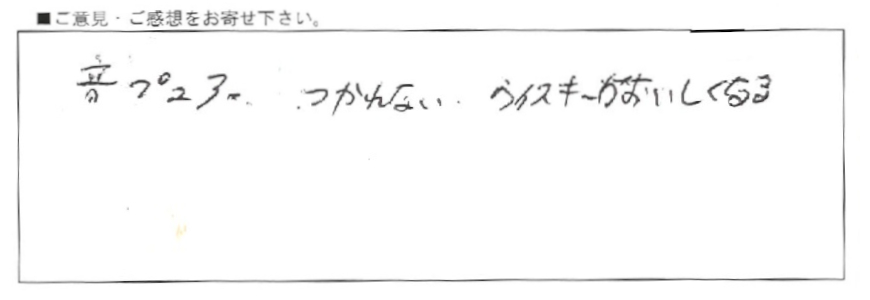 ■ご意見・ご感想をお寄せ下さい。
音ピュアー、つかれない、ウイスキーがおいしくなる